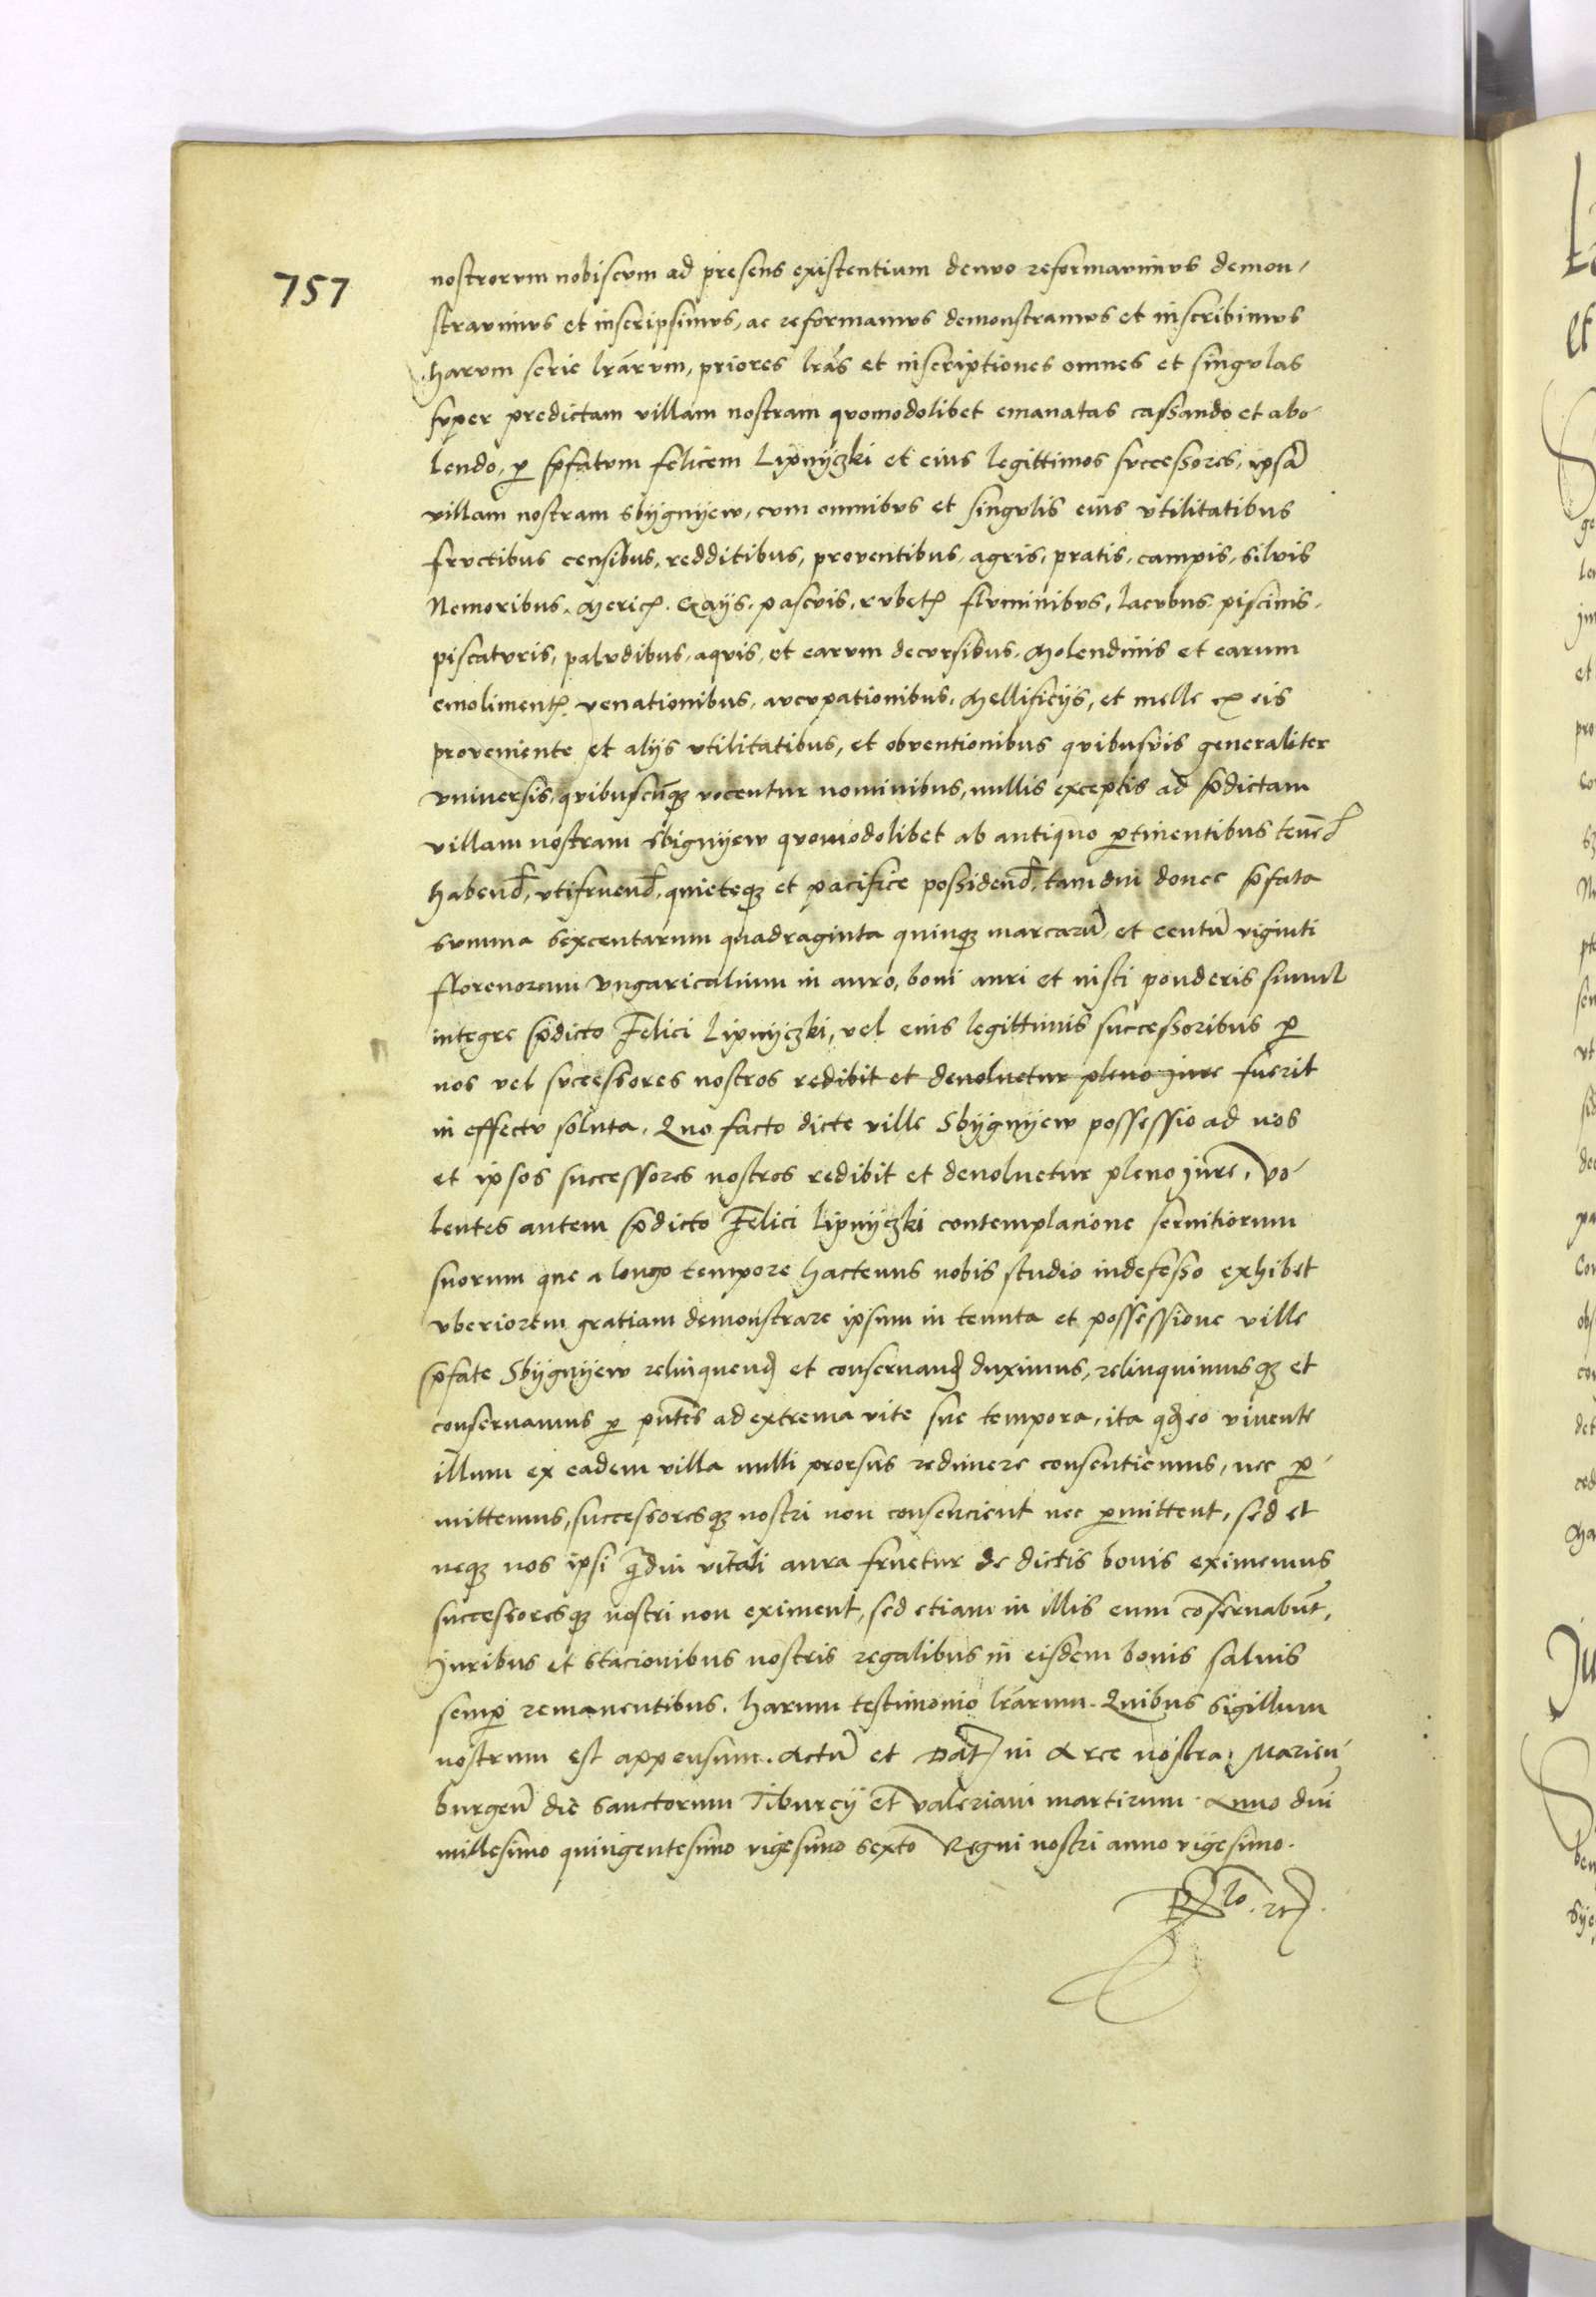 757
nostrorum nobiscum ad presens existentium denuo reformauimus demon-
strauimus et inscripsimus, ac reformamus demonstramus et inscribimus
harum serie lrarum, priores lras et inscriptiones omnes et singulas
super predictam villam nostram quomodolibet emanatas cassando et abo-
lendo, p pfatum felicem Lipnyczki et eius legittimos successores, ipsa
villam nostram Sbygnyew, cum omnibus et singulis eius vtilitatibus
fructibus censibus, redditibus, prouentibus, agris, pratis, campis, siluis
Nemoribus, Meric, Gays, pascuis, rubet fluminibus, lacubus piscinis,
piscaturis, paludibus, aquis, et earum decursibus, Molendinis et earum
emoliment, venationibus, aucupationibus, Mellificijs, et melle ex eis
proueniente et alijs vtilitatibus, et obuentionibus quibusuis generaliter
vniuersis, quibuscunq vocentur nominibus, nullis exceptis ad pdictam
villam nostram Sbignyew quomodolibet ab antiquo ptinentibus tenend
habend, vtifruend, quieteq et pacifice possidend, tam diu donec pfata
summa sexcentarum quadraginta quinq marcaru et centu viginti
florenorum Vngaricalium in auro, boni auri et iusti ponderis simul
integre pdicto Felici Lipnyczki, vel eius legittimis successoribus p
nos vel successores nostros redibit et deuoluetur pleno iure fuerit
in effectu soluta. Quo facto dicte ville Sbygnyew possessio ad nos
et ipsos successores nostros redibit et deuoluetur pleno iure, Vo-
lentes autem pdicto Felici Lipnyczki contemplacione seruitiorum
suorum que a longo tempore hactenus nobis studio indefesso exhibet
vberiorem gratiam demonstrare ipsum in tenuta et possessione ville
pfate Sbygnyew relinquend et conseruand duximus, relinquimusq et
conseruamus p pntes ad extrema vite sue tempora, ita qd eo viuente
illum ex eadem villa nulli prorsus redimere consentiemus, nec p-
mittemus, successoresq nostri non consencient nec pmittent, sed et
neq nos ipsi qdiu vitali aura fruetur de dictis bonis eximemus
successoresq nostri non eximent, sed etiam in illis eum coseruabut,
Iuribus et stacionibus nostris regalibus in eisdem bonis saluis
semp remanentibus. Harum testimonio lrarum. Quibus Sigillum
nostrum est appensum. Actu et Dat in Arce nostra Marien-
burgen die Sanctorum Tiburcij et Valeriani martirum. Anno dni
millesimo quingentesimo vigesimo sexto Regni nostri anno vigesimo.